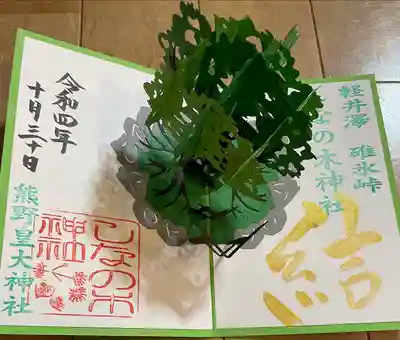 軽井澤 碓氷峠
しなの木神社
結
令和四年
十月三十日
しなの木
神社
熊野皇大神社